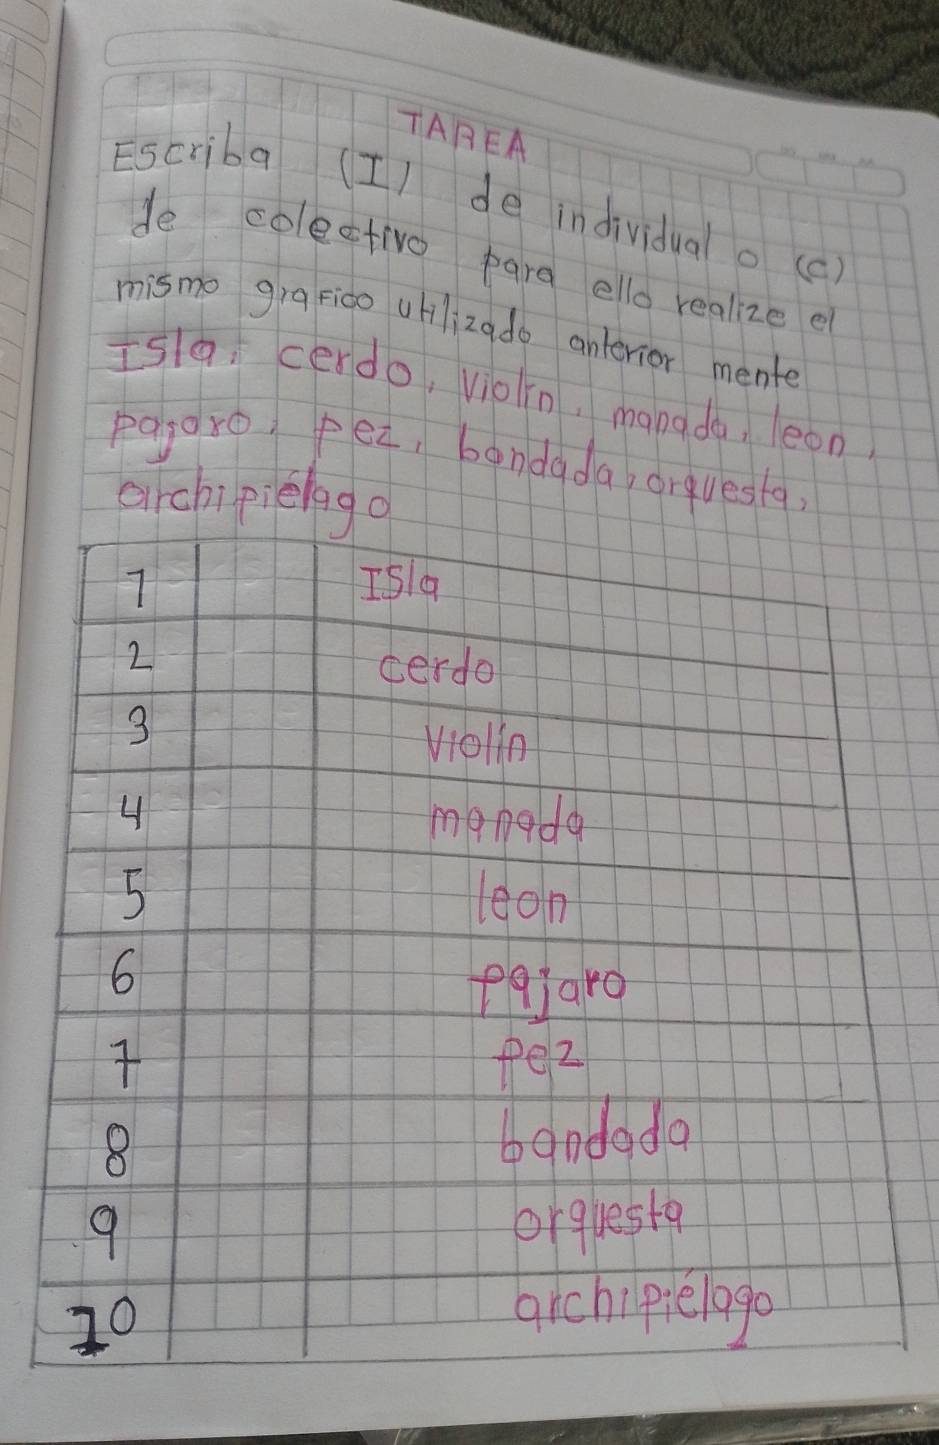 TAREA
Escriba (I) de individual o (c)
de colectivo para ello realize el
mismo grafico utilizado anterior mente
Isla, cerdo, violin, manada, leon,
pajaro, pez, bandada, orquesta,
archipiélago
1 Isla
2 cerdo
3 violin
4 manada
5 leon
6 pajaro
7 pez
8 bandada
9 orquesta
10 archipiélago